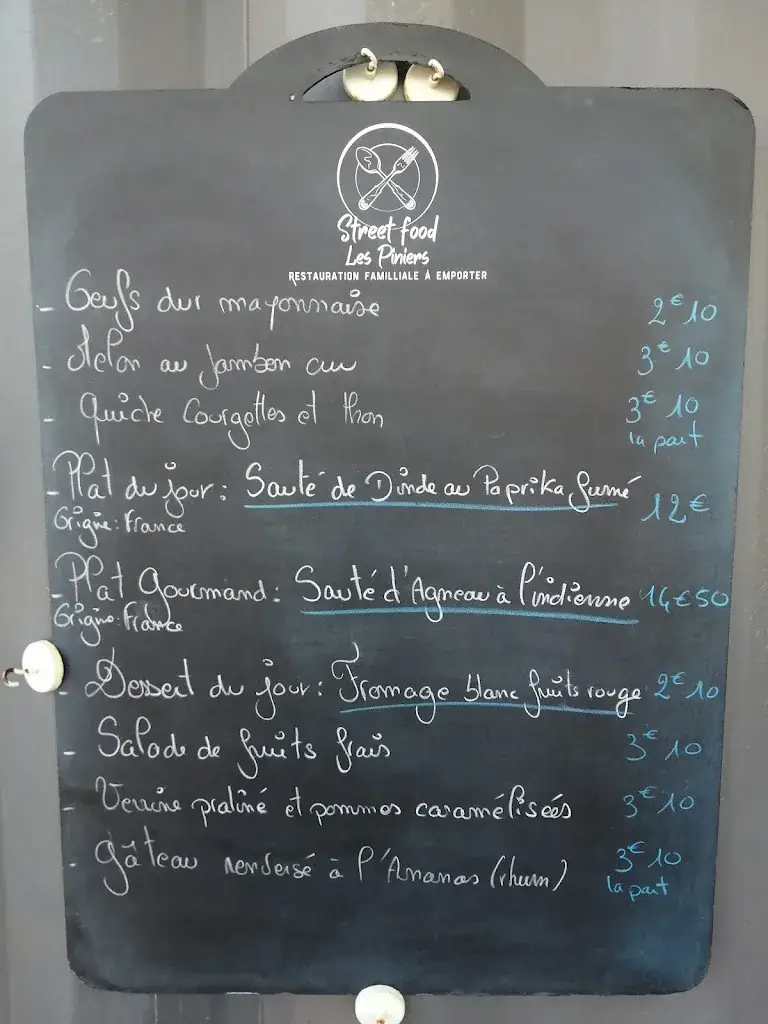 Street food
Les Piniers
RESTAURATION FAMILLIALE À EMPORTER
- Oeufs dur mayonnaise 2€10
- Melon au jambon cru 3€10
- Quiche Courgettes et thon 3€10
la part
- Plat du jour : Sauté de Dinde au Paprika fumé 12€
Origine : France
- Plat Gourmand : Sauté d'Agneau à l'indienne 14€50
Origine : France
- Dessert du jour : Fromage blanc fruits rouge 2€10
- Salade de fruits frais 3€10
- Verrine praliné et pommes caramélisées 3€10
- gâteau renversé à l'Ananas (rhum) 3€10
la part